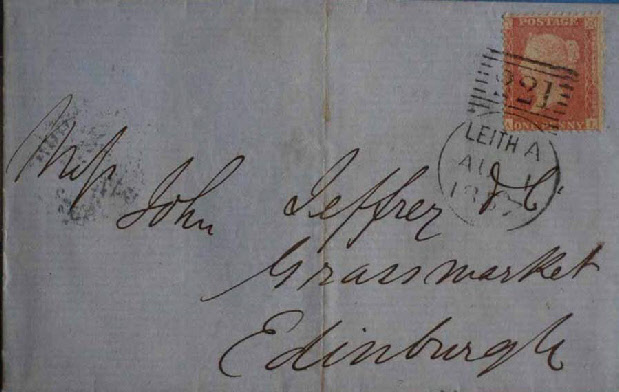 POSTAGE
221
ONE PENNY
LEITH A
AU 1
Mess
John Jeffrey & Co
Grassmarket
Edinburgh